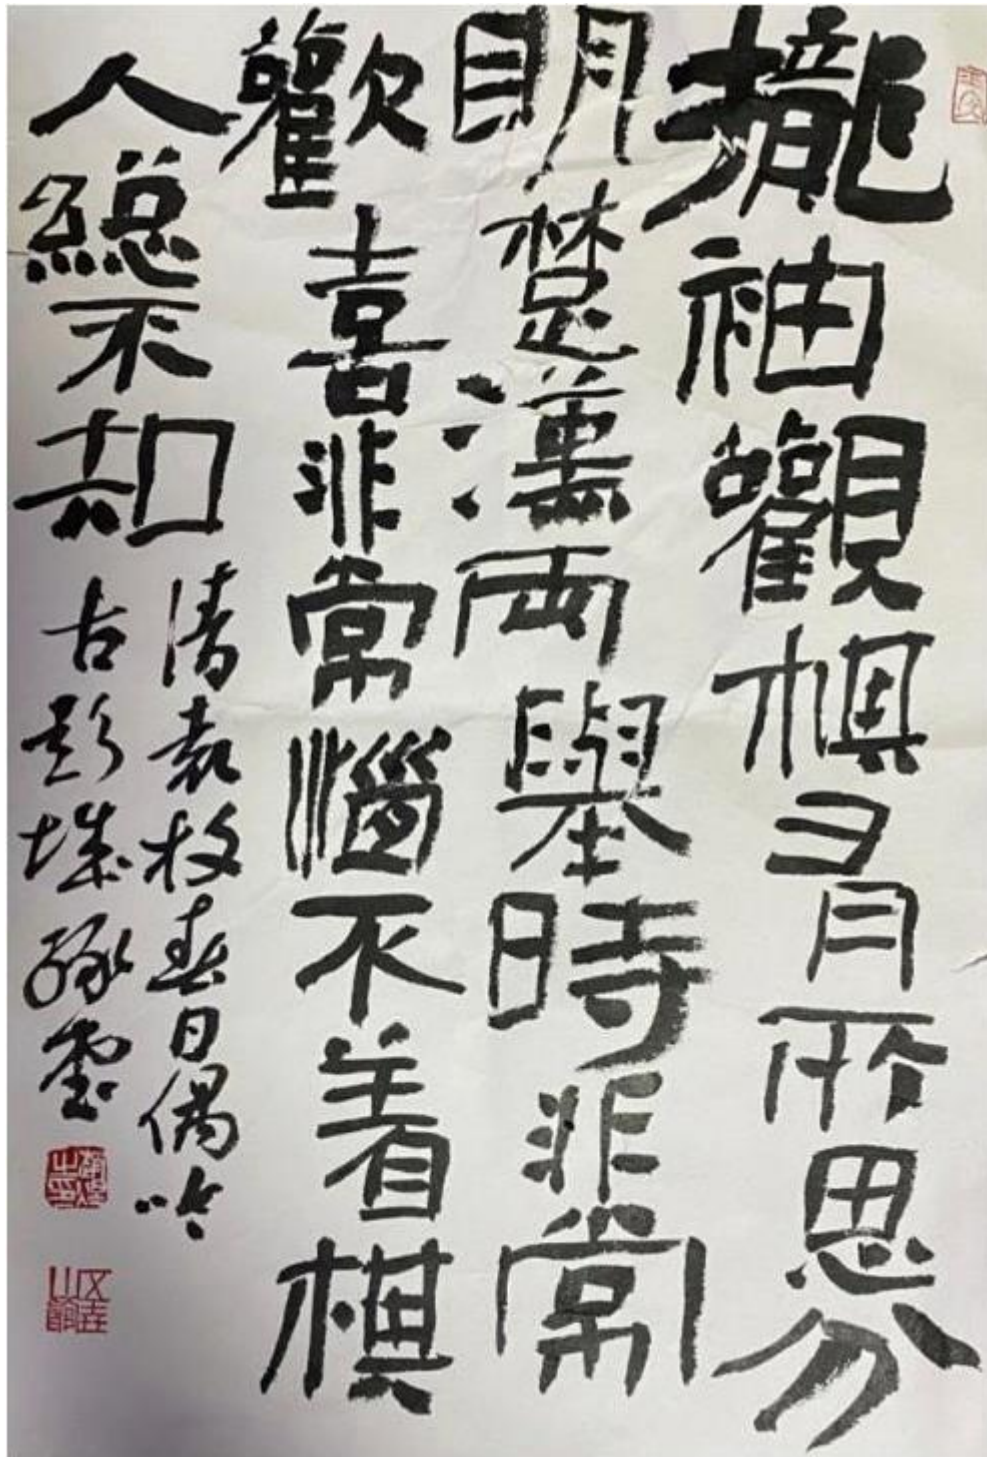 攏袖觀棋有所思分
明楚漢兩舉時非常
歡喜非常惱不着棋
人總不知
清袁枚春日偶吟
古彭城